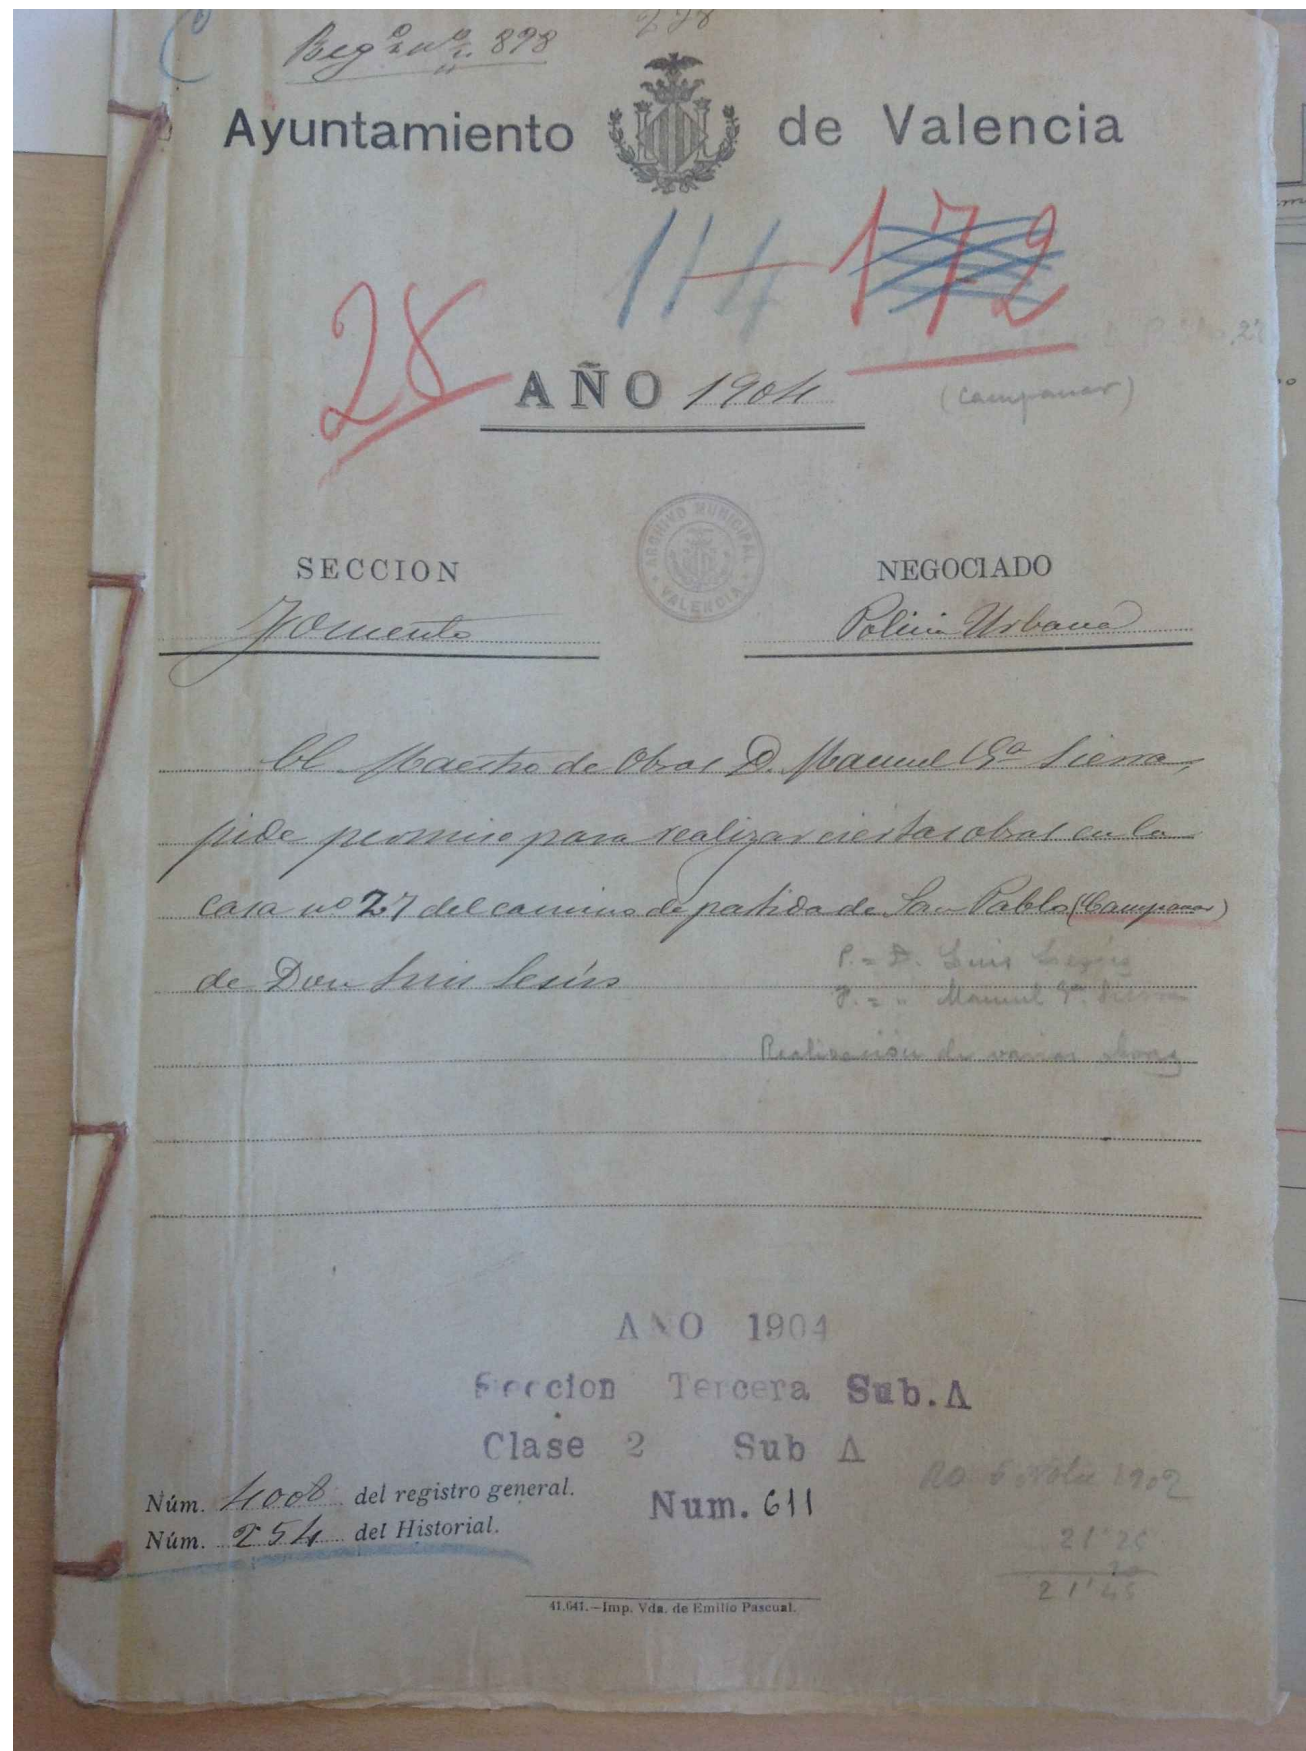 898
Ayuntamiento de Valencia
114 172
28
AÑO 1904
(Campanar)
ARCHIVO MUNICIPAL VALENCIA
SECCION NEGOCIADO
Fomento Policia Urbana
El Maestro de Obras D. Manuel Gª Sierra,
pide permiso para realizar ciertas obras en la
casa nº 27 del camino de patida de San Pablo (Campanar)
de Don Luis
P. = D. Luis
F. = " Manuel Gª. Sierra
Realización de varias obras
AÑO 1904
Seccion Tercera Sub. A
Clase 2 Sub A
Núm. 4008 del registro general.
Num. 611
Núm. 254 del Historial.
1902
41.641.—Imp. Vda. de Emilio Pascual.